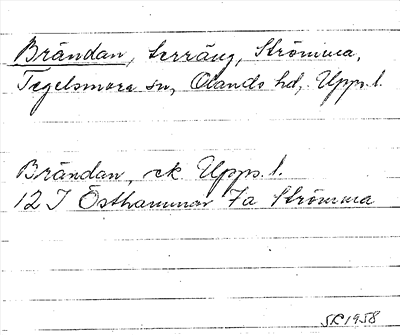 Brändan, terräng, Strömma,
Tegelsmora sn, Olands hd, Upps. l.
Brändan, ek Upps. l.
12 I Östhammar 7a Strömma
SR 1958